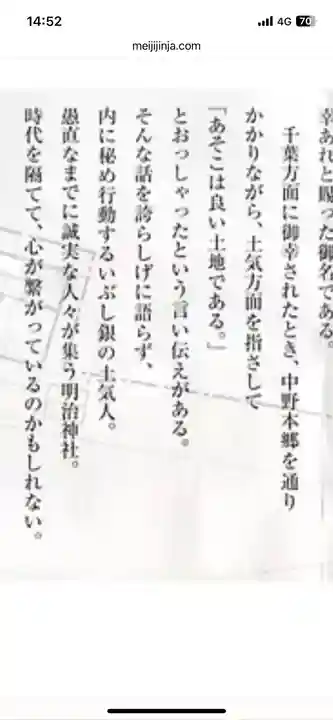 14:52
4G 70
meijijinja.com
幸あれと賜った御名である。
千葉方面に御幸されたとき、中野本郷を通り
かかりながら、土気方面を指さして
「あそこは良い土地である。」
とおっしゃったという言い伝えがある。
そんな話を誇らしげに語らず、
内に秘め行動するいぶし銀の土気人。
愚直なまでに誠実な人々が集う明治神社。
時代を隔てて、心が繋がっているのかもしれない。